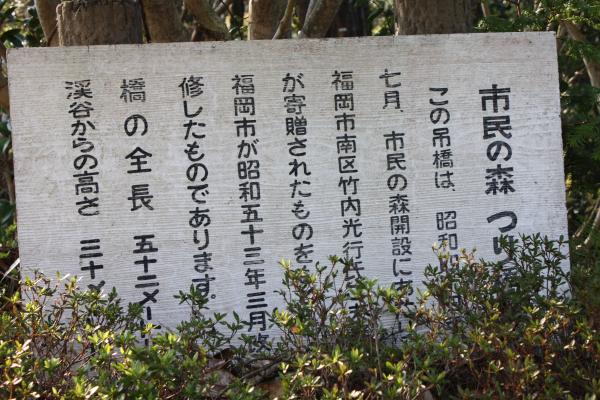 市民の森 つり
この吊橋は、昭和
七月、市民の森開設にあ
福岡市南区竹内光行氏
が寄贈されたものを
福岡市が昭和五十三年三月改
修したものであります。
橋の全長 五十二メー
渓谷からの高さ 三十メ